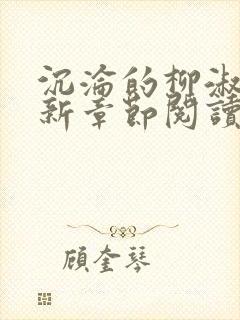 沉淪的柳淑
新章節閱讀
顧奎琴